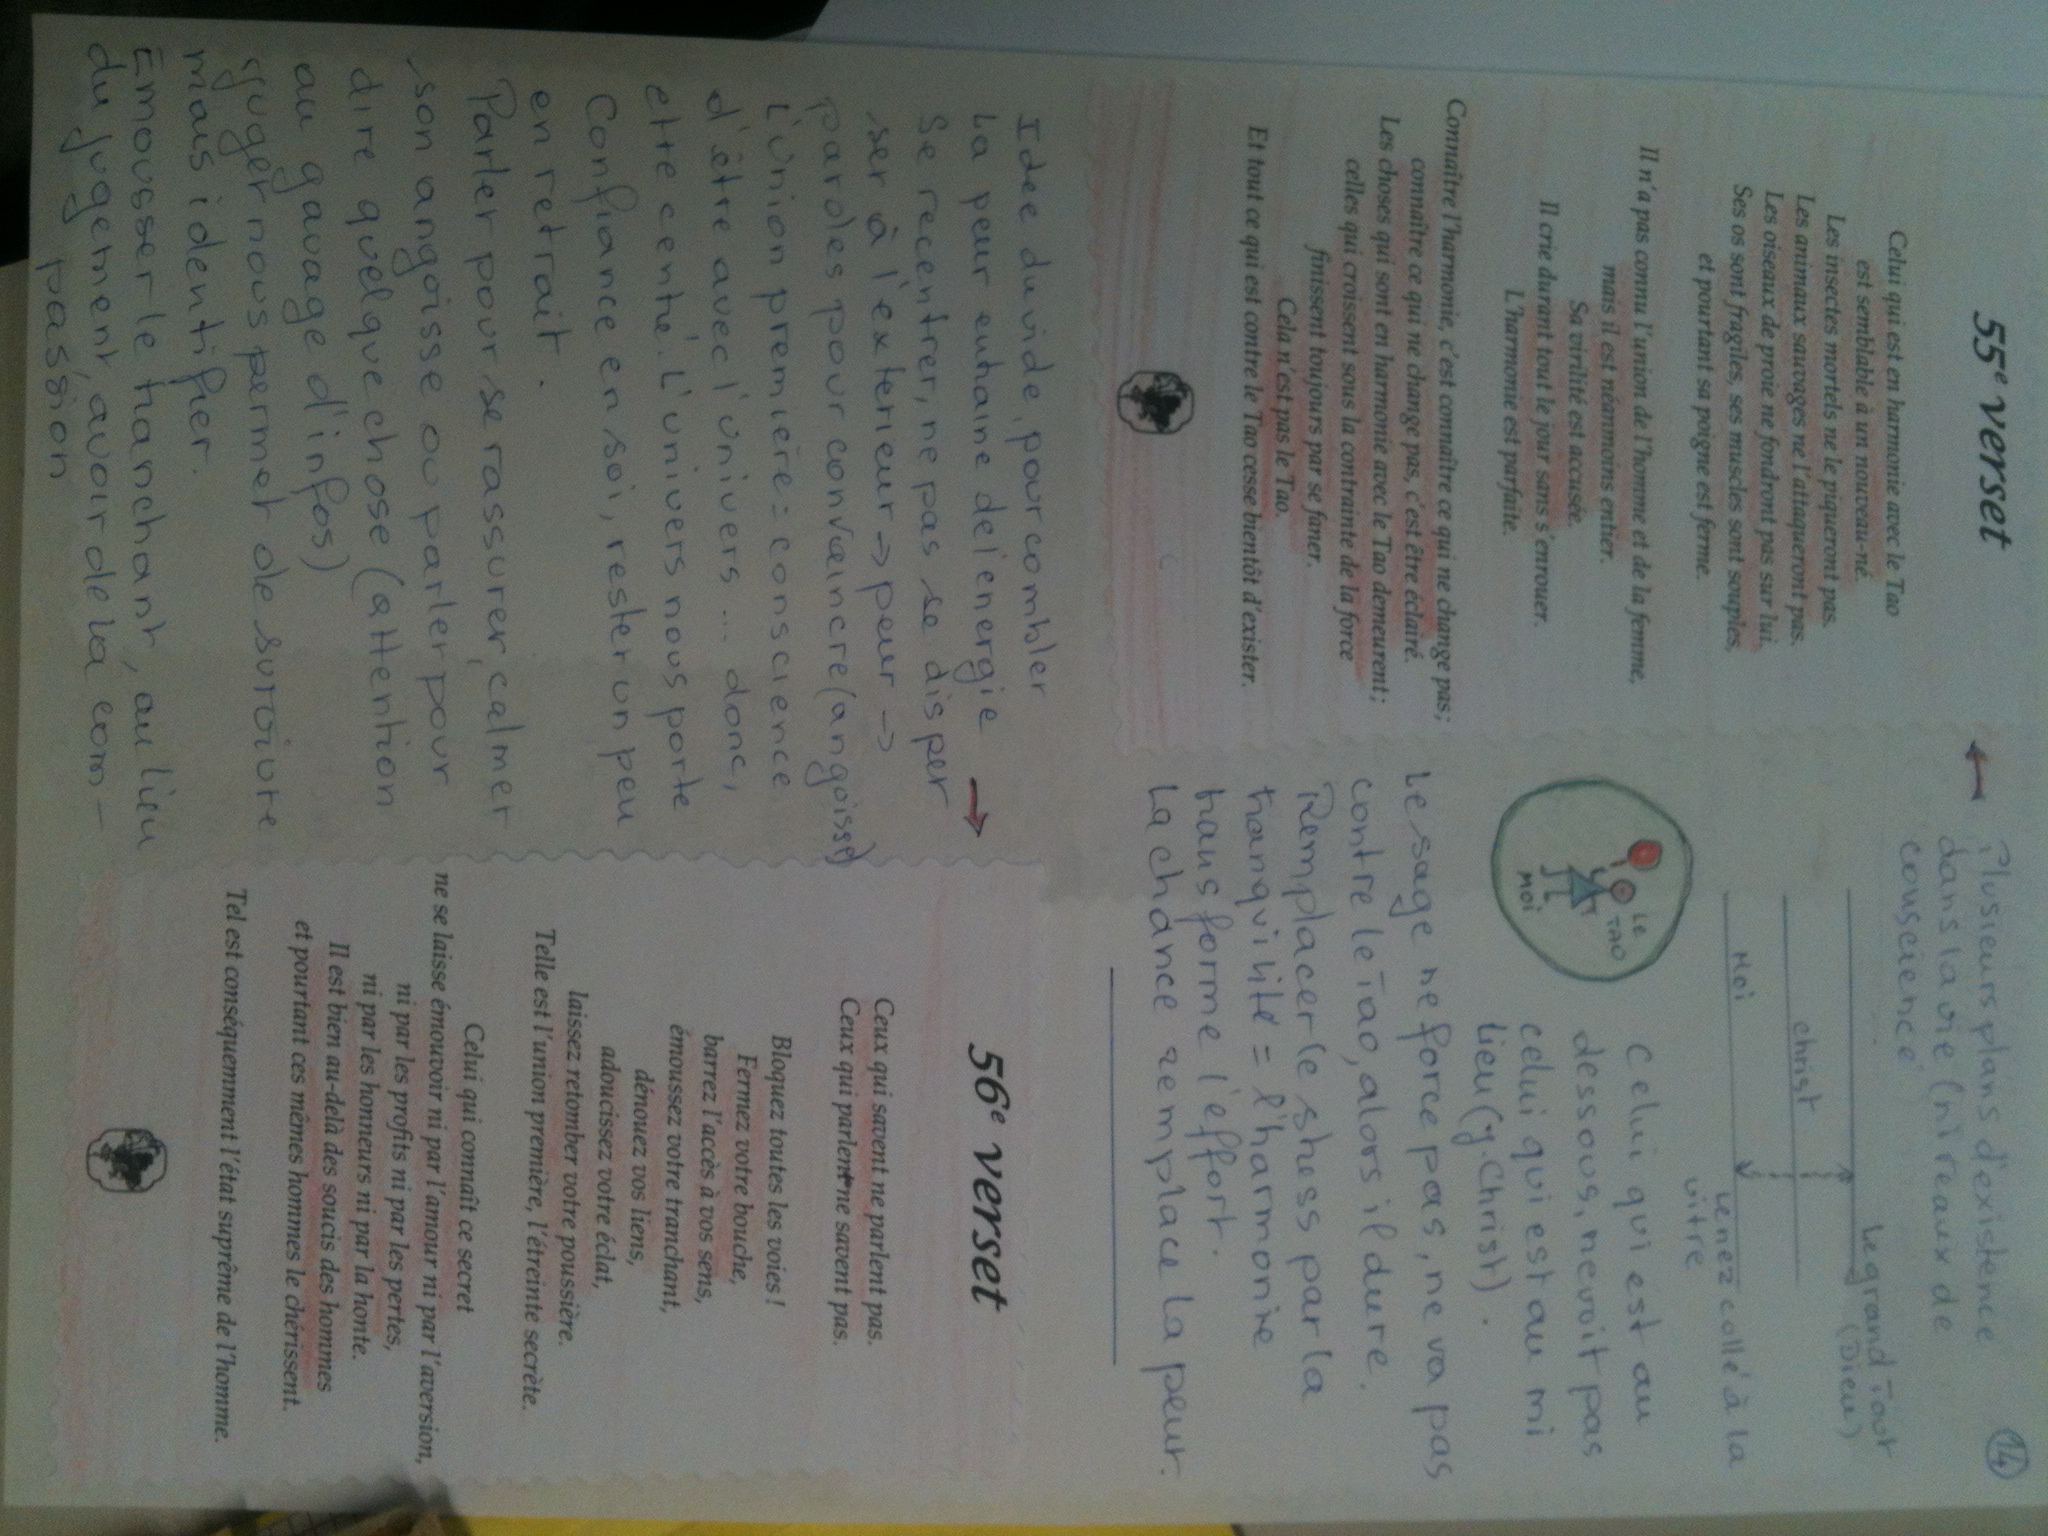 14
55e verset
Celui qui est en harmonie avec le Tao
est semblable à un nouveau-né.
Les insectes mortels ne le piqueront pas.
Les animaux sauvages ne l'attaqueront pas.
Les oiseaux de proie ne fondront pas sur lui.
Ses os sont fragiles, ses muscles sont souples,
et pourtant sa poigne est ferme.
Il n'a pas connu l'union de l'homme et de la femme,
mais il est néanmoins entier.
Sa virilité est accusée.
Il crie durant tout le jour sans s'enrouer.
L'harmonie est parfaite.
Connaître l'harmonie, c'est connaître ce qui ne change pas;
connaître ce qui ne change pas, c'est être éclairé.
Les choses qui sont en harmonie avec le Tao demeurent;
celles qui croissent sous la contrainte de la force
finissent toujours par se faner.
Cela n'est pas le Tao.
Et tout ce qui est contre le Tao cesse bientôt d'exister.
Plusieurs plans d'existence
dans la vie (niveaux de
conscience
Le grand Tao
(Dieu)
christ
Moi
le nez collé à la
vitre
LE
TAO
MOI
Celui qui est au
dessous, ne voit pas
celui qui est au mi
lieu (j. Christ).
Le sage ne force pas, ne va pas
contre le Tao, alors il dure.
Remplacer le stress par la
tranquilité = l'harmonie
transforme l'effort.
La chance remplace la peur.
Idée du vide, pour combler
La peur entraine de l'énergie
Se recentrer, ne pas se disper
ser à l'exterieur → peur →
paroles pour convaincre (angoisse)
L'union première = conscience
d'être avec l'univers ... donc,
etre centré. L'univers nous porte
Confiance en soi, rester un peu
en retrait.
Parler pour se rassurer, calmer
son angoisse ou parler pour
dire quelque chose (attention
au gavage d'infos)
juger nous permet de survivre
mais identifier.
Emousser le tranchant, au lieu
du jugement, avoir de la com-
passion
56e verset
Ceux qui savent ne parlent pas.
Ceux qui parlent ne savent pas.
Bloquez toutes les voies!
Fermez votre bouche,
barrez l'accès à vos sens,
émoussez votre tranchant,
dénouez vos liens,
adoucissez votre éclat,
laissez retomber votre poussière.
Telle est l'union première, l'étreinte secrète.
Celui qui connaît ce secret
ne se laisse émouvoir ni par l'amour ni par l'aversion,
ni par les profits ni par les pertes,
ni par les honneurs ni par la honte.
Il est bien au-delà des soucis des hommes
et pourtant ces mêmes hommes le chérissent.
Tel est conséquemment l'état suprême de l'homme.